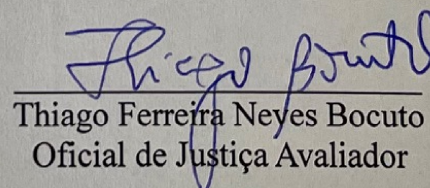 Thiago Bocuto
Thiago Ferreira Neves Bocuto
Oficial de Justiça Avaliador